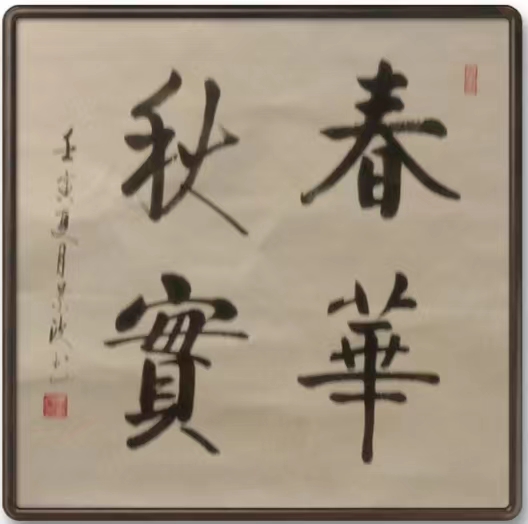 春華
秋實
壬寅夏月